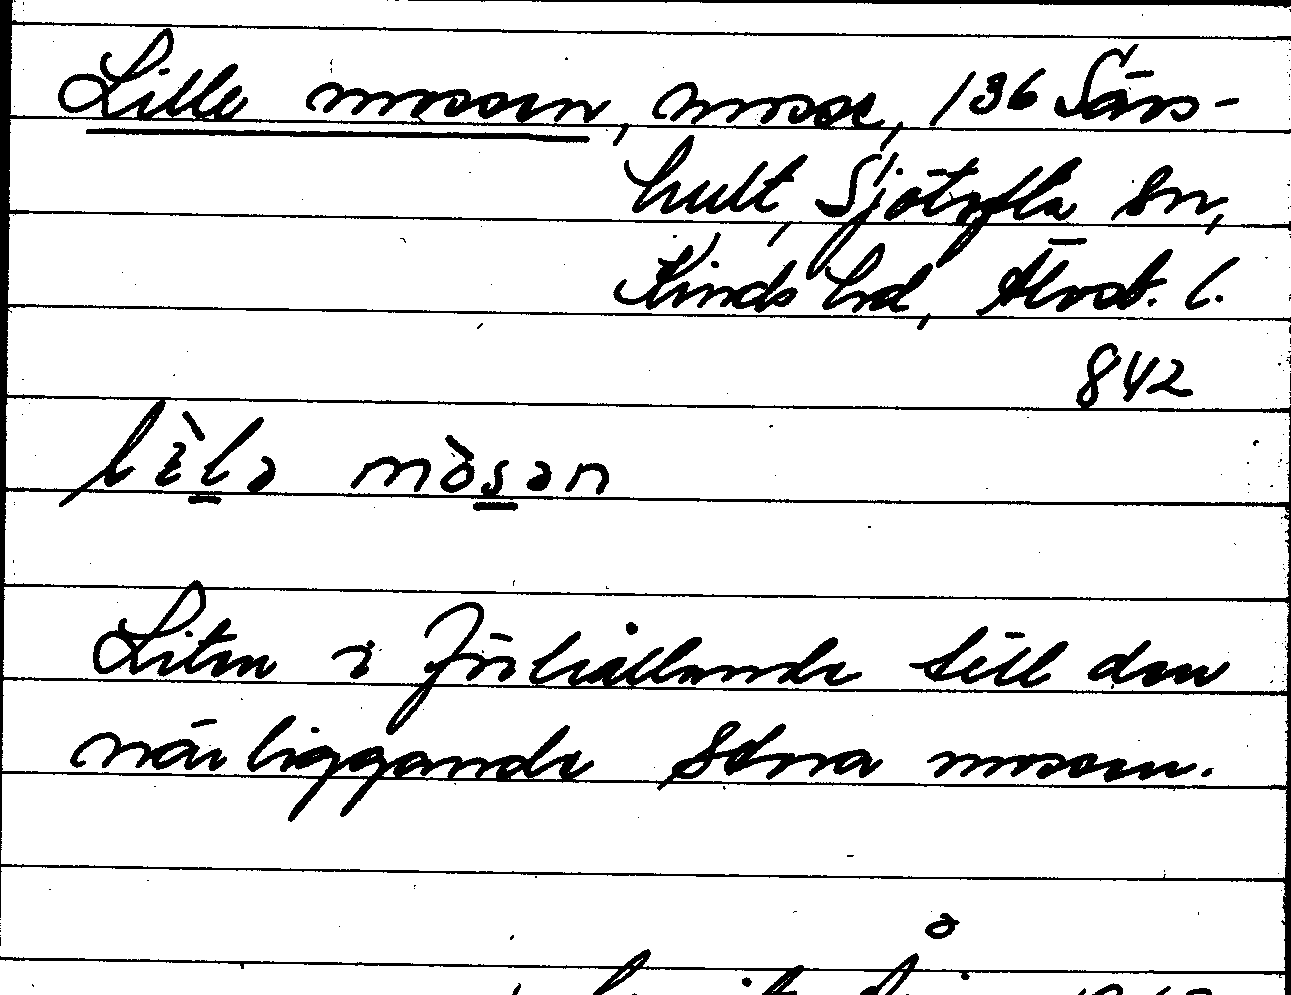 Lille mossen, mosse, 136 Särs-
hult, Sjötofta sn,
Kinds hd, Älvsb. l.
842
lìlə mòsən
Liten i förhållande till den
närliggande Stora mossen.